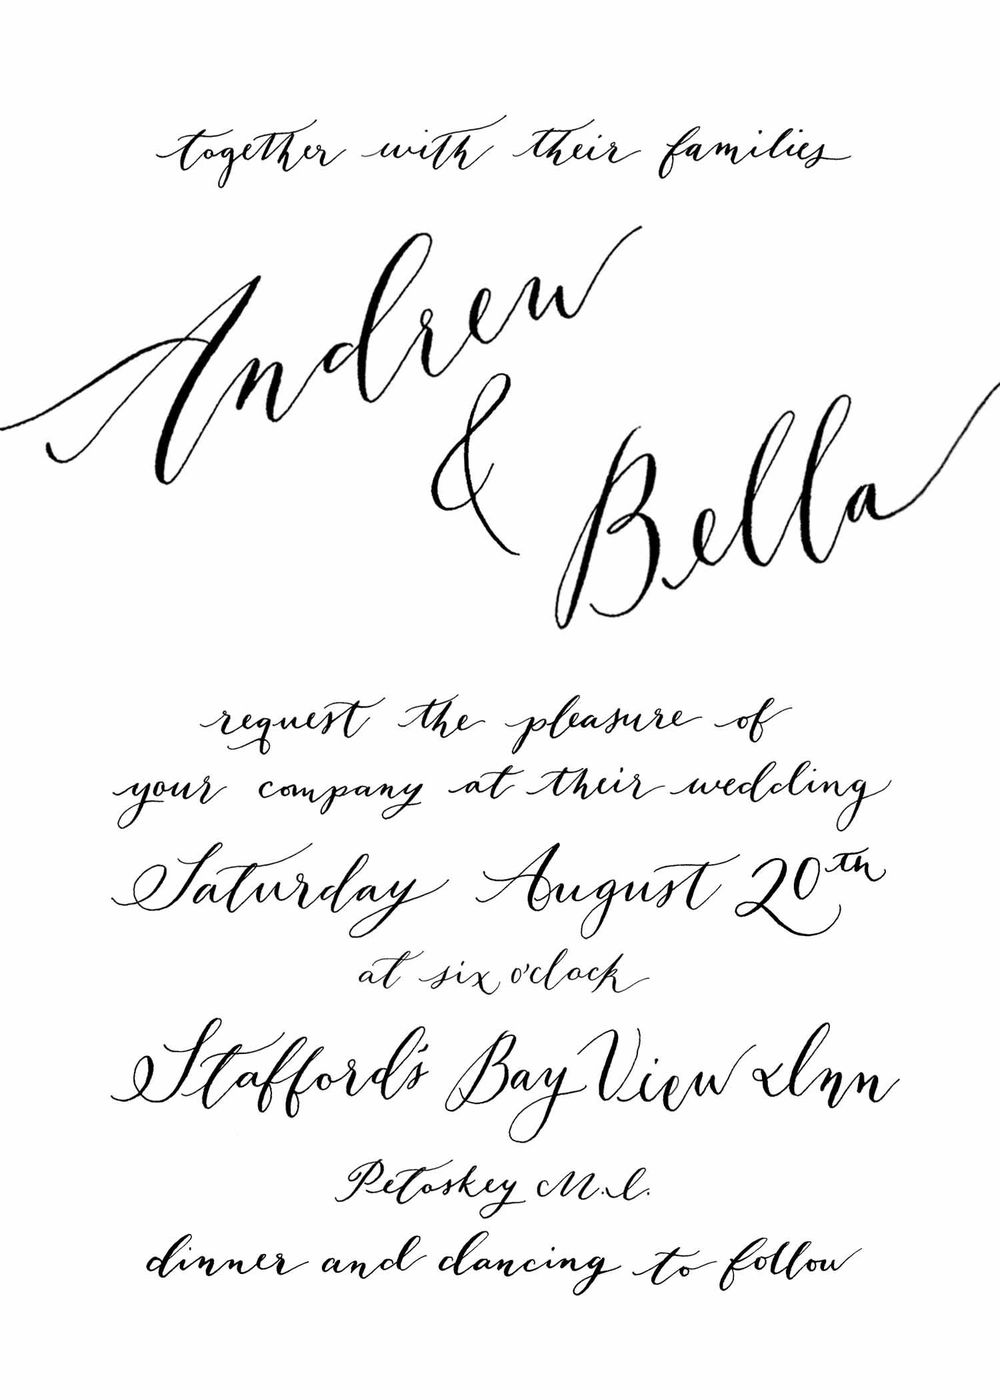 together with their families
Andrew
&
Bella
request the pleasure of
your company at their wedding
Saturday August 20th
at six o'clock
Stafford's Bay View Inn
Petoskey M.I.
dinner and dancing to follow